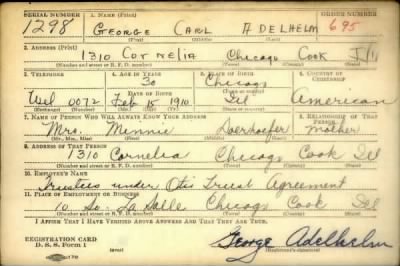 SERIAL NUMBER 1. NAME (Print) ORDER NUMBER
1298 GEORGE CARL ADELHELM 695
(First) (Middle) (Last)
2. ADDRESS (Print)
1310 CORNELIA Chicago Cook Ill
(Number and street or R. F. D. number) (Town) (County) (State)
3. TELEPHONE 4. AGE IN YEARS 5. PLACE OF BIRTH 6. COUNTRY OF CITIZENSHIP
30 Chicago
DATE OF BIRTH (Town or county)
0072 Feb 15 1910 Ill American
(Exchange) (Number) (Mo.) (Day) (Yr.) (State or country)
7. NAME OF PERSON WHO WILL ALWAYS KNOW YOUR ADDRESS 8. RELATIONSHIP OF THAT PERSON
Mrs. Minnie Doerhoefer mother
(Mr., Mrs., Miss) (First) (Middle) (Last)
9. ADDRESS OF THAT PERSON
1310 Cornelia Chicago Cook Ill
(Number and street or R. F. D. number) (Town) (County) (State)
10. EMPLOYER'S NAME
Trustees under Otis Trust Agreement
11. PLACE OF EMPLOYMENT OR BUSINESS
10 So. La Salle Chicago Cook Ill
(Number and street or R. F. D. number) (Town) (County) (State)
I AFFIRM THAT I HAVE VERIFIED ABOVE ANSWERS AND THAT THEY ARE TRUE.
REGISTRATION CARD
D. S. S. Form 1 George Adelhelm
(Registrant's signature)